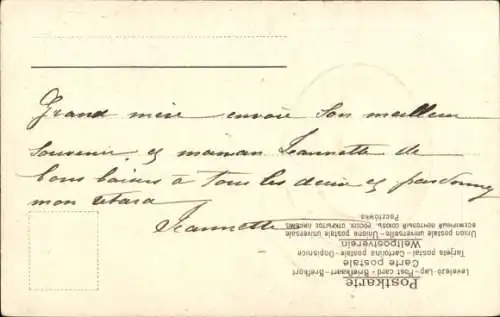 Grand mère envoie son meilleur
souvenir et maman Jeannette de
bons baisers à tous les deux et pardonnez
mon retard
Jeannette
Postkarte
Carte postale
Weltpostverein
Levelező-Lap - Post card - Briefkaart - Brefkort
Tarjeta postal - Cartolina postale - Dopisnice
Union postale universelle - Unione postale universale
ВСЕМІРНЫЙ ПОЧТОВЫЙ СОЮЗЪ. РОССІЯ. ОТКРЫТОЕ ПИСЬМО.
Pocztówka